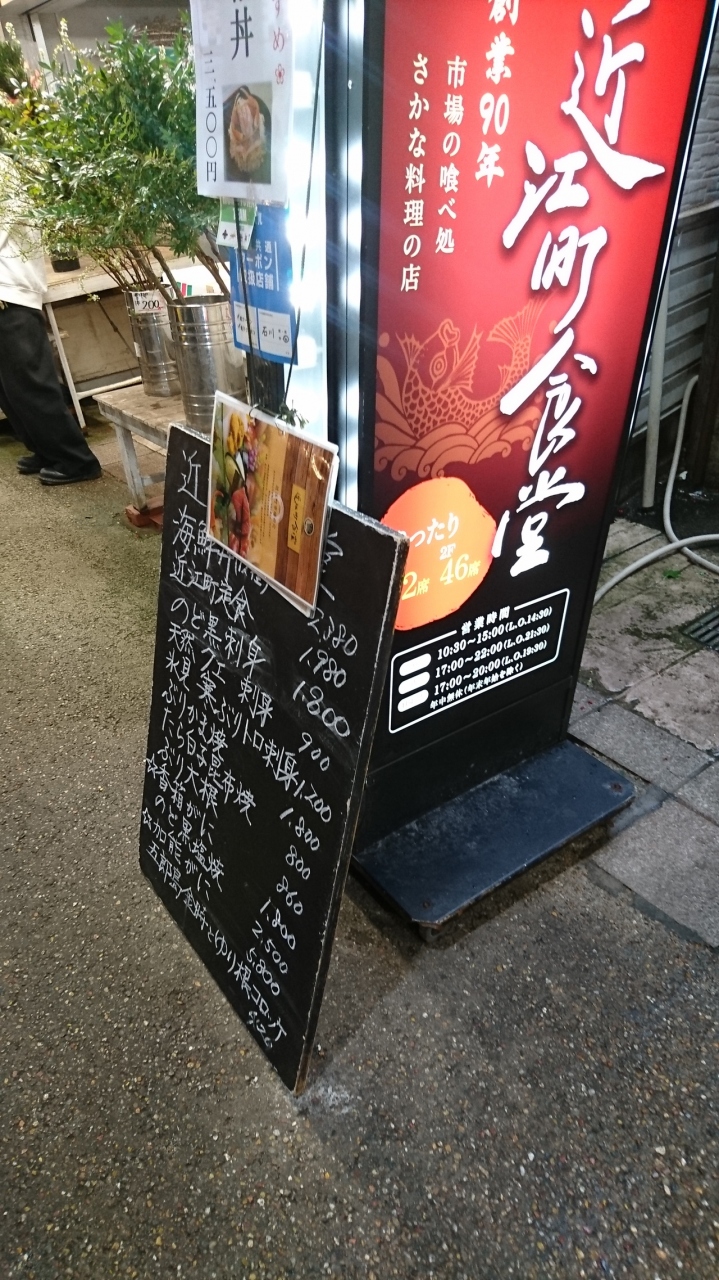 丼
三、五〇〇円
創業90年
市場の喰べ処
さかな料理の店
近江町食堂
共通
クーポン
取扱店舗
石川
200
ったり
2F
2席 46席
営業時間
10:30~15:00(L.O.14:30)
17:00~22:00(L.O.21:30)
17:00~20:00(L.O.19:30)
年中無休(年末年始を除く)
近
海鮮丼
2,380
近江町定食
1,980
のど黒刺身
1,800
天然クエ刺身
900
氷見寒ぶりトロ刺身
1,200
ぶりかま焼
1,800
たら白子昆布焼
800
ぶり大根
860
香箱がに
1,800
のど黒塩焼
2,500
加能がに
5,800
五郎島金時とゆり根コロッケ